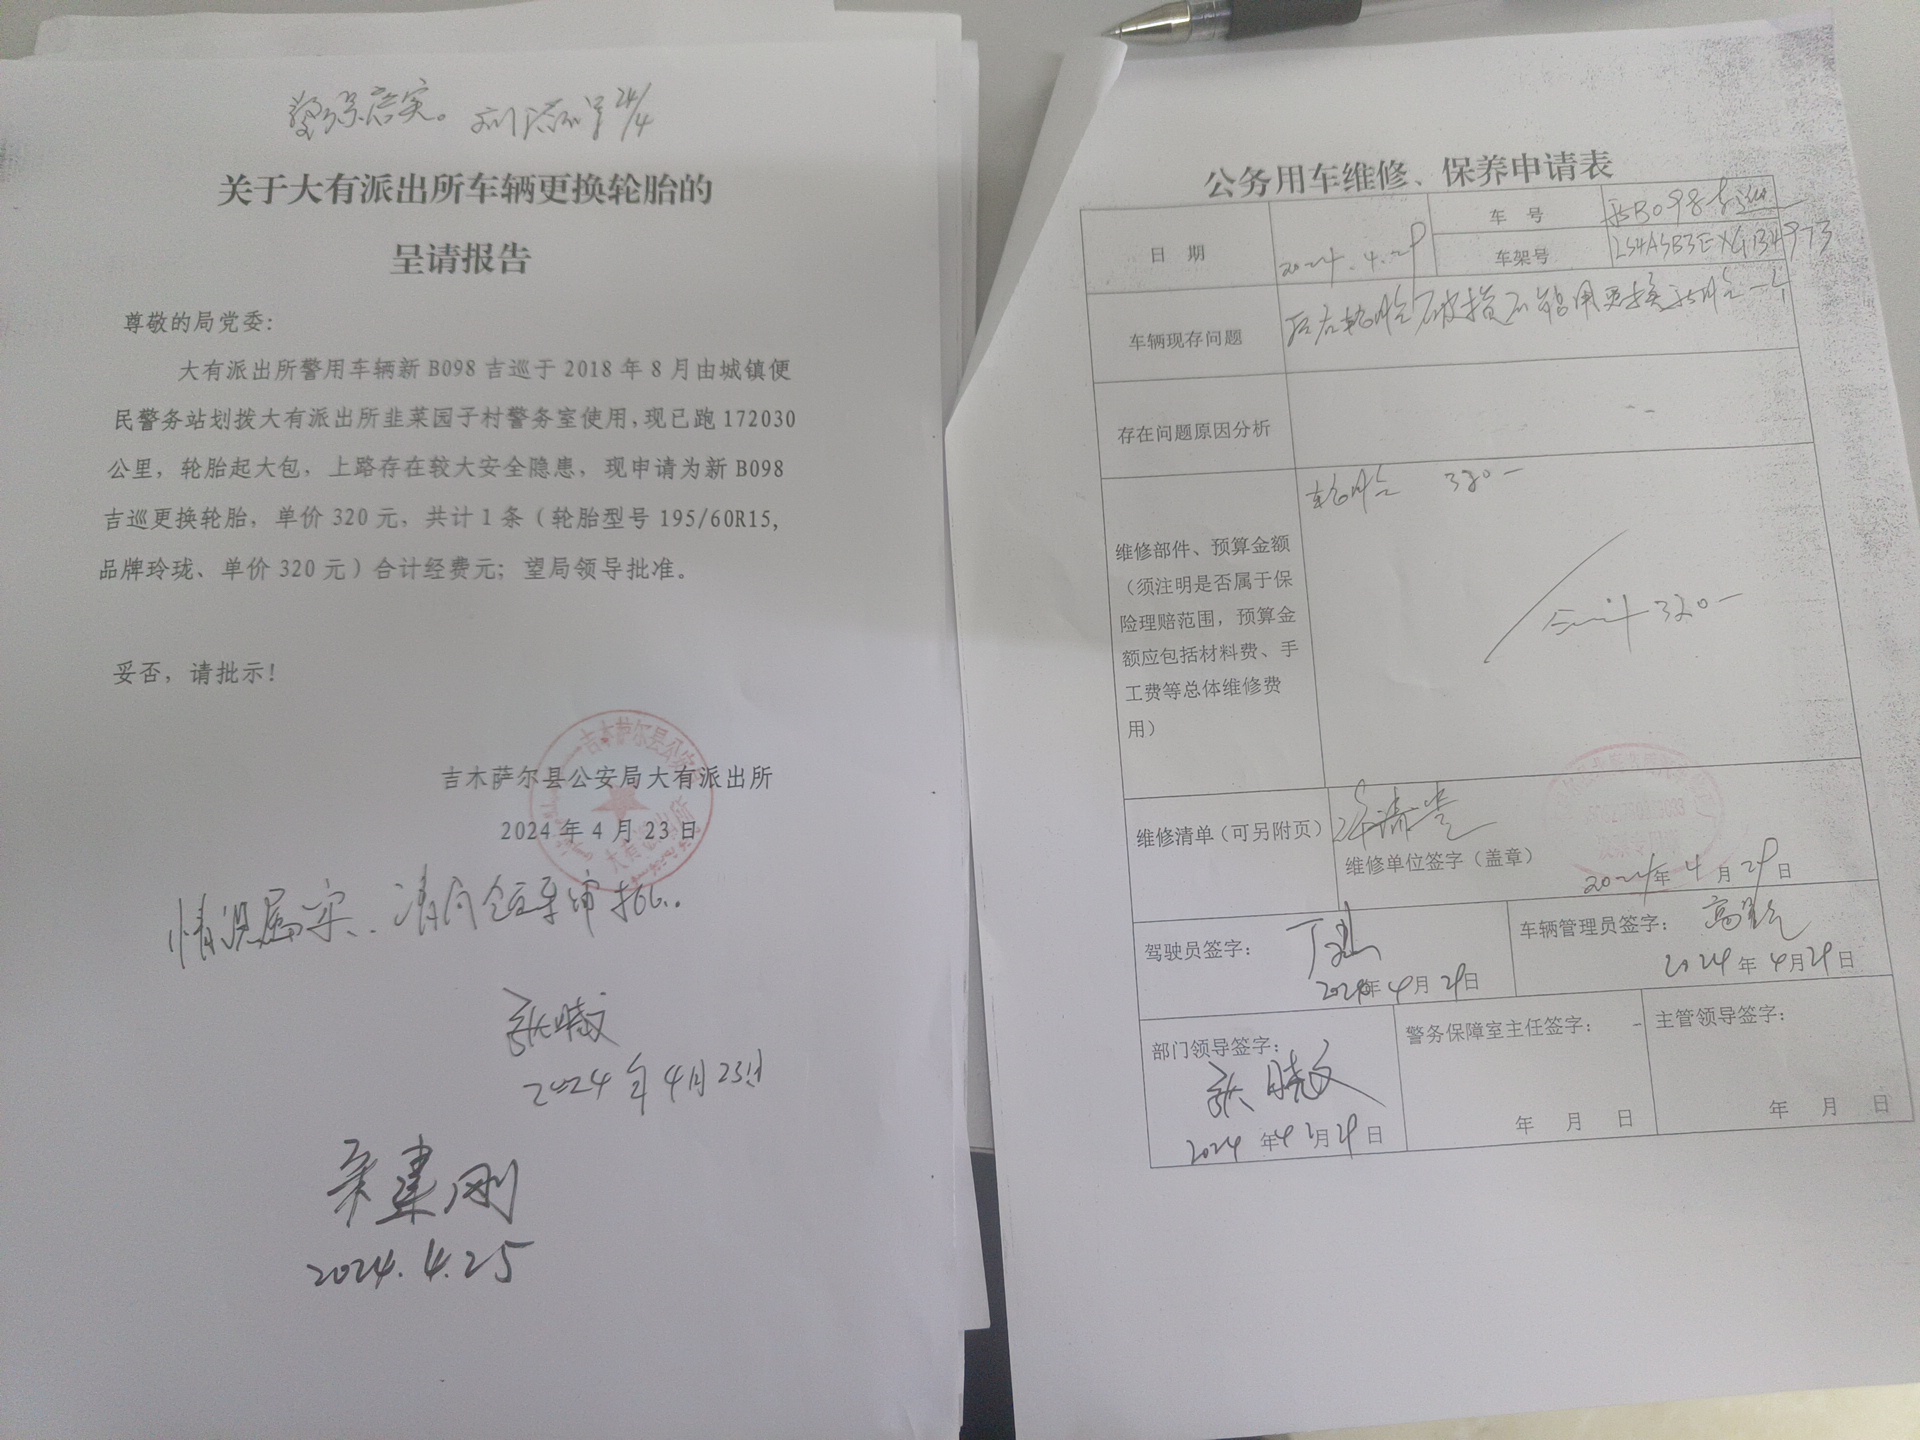 警保落实。
24/4
关于大有派出所车辆更换轮胎的
呈请报告
尊敬的局党委：
大有派出所警用车辆新 B098 吉巡于 2018 年 8 月由城镇便
民警务站划拨大有派出所韭菜园子村警务室使用,现已跑 172030
公里，轮胎起大包，上路存在较大安全隐患，现申请为新 B098
吉巡更换轮胎，单价 320 元，共计 1 条（轮胎型号 195/60R15,
品牌玲珑、单价 320 元）合计经费元；望局领导批准。
妥否，请批示！
吉木萨尔县公安局大有派出所
2024 年 4 月 23 日
情况属实、请何全军审批.
张晓文
2024年4月23日
辛建刚
2024.4.25
公务用车维修、保养申请表
日 期
2024.4.29
车 号
新B098吉巡
车架号
LS4ASB3EXGB
车辆现存问题
后右轮胎破损不能用更换新胎一个
存在问题原因分析
维修部件、预算金额
（须注明是否属于保
险理赔范围，预算金
额应包括材料费、手
工费等总体维修费
用）
轮胎 320一
合计320一
维修清单（可另附页）
维修单位签字（盖章）
2024年 4 月 29 日
驾驶员签字：
2024年 4 月 29 日
车辆管理员签字：
2024 年 4 月 29 日
部门领导签字：
张晓文
2024 年 4 月 29 日
警务保障室主任签字：
年 月 日
主管领导签字：
年 月 日